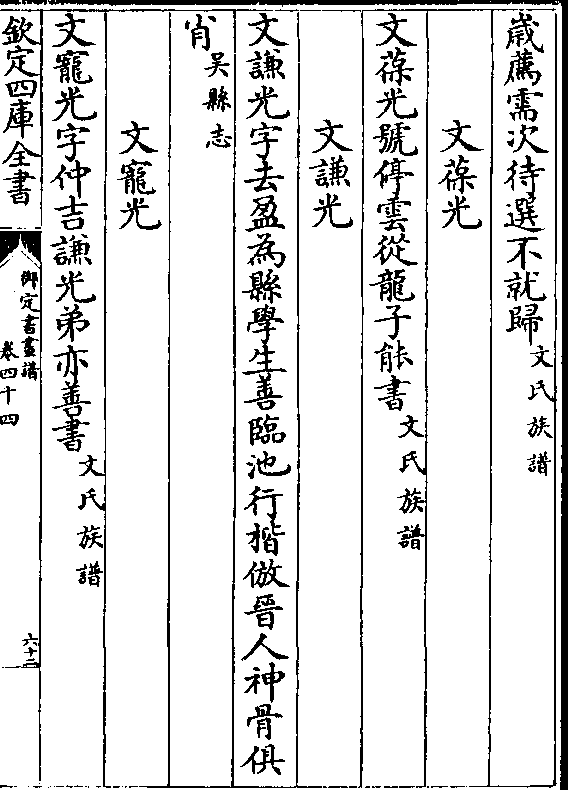 歳薦需次待選不就歸文氏族譜
文葆光
文葆光號停雲從龍子能書文氏族譜
文謙光
文謙光字去盈為縣學生善臨池行楷倣晉人神骨俱
肖吳縣志
文寵光
文寵光字仲吉謙光弟亦善書文氏族譜
欽定四庫全書
御定書畫譜
卷四十四
六十二